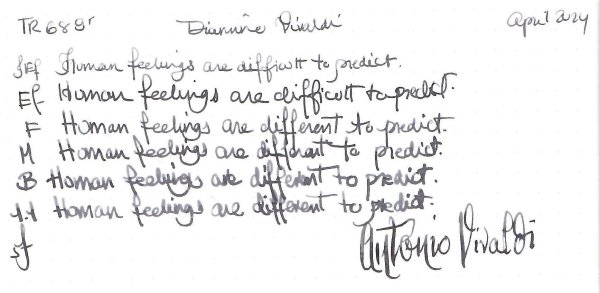 TR689r Diannine Vivaldi April 2024
3Ef Human feelings are difficult to predict.
Ef Homan feelings are difficult to predict.
F Homan feelings are different to predict.
M Homan feelings are different to predict.
B Homan feelings are different to predict.
1.1 Homan feelings are different to predict.
sf Antonio Vivaldi